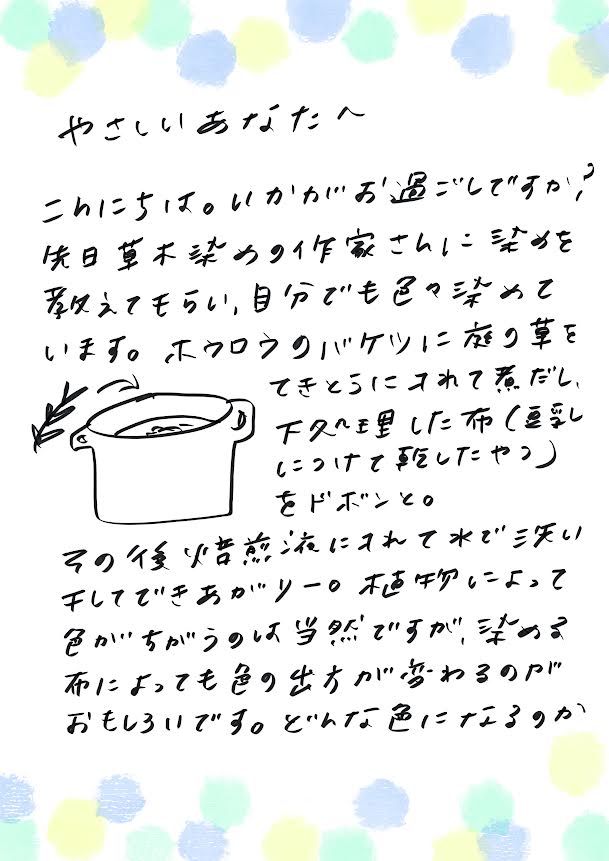 やさしいあなたへ
こんにちは。いかがお過ごしですか？
先日草木染めの作家さんに染めを
教えてもらい、自分でも色々染めて
います。ホウロウのバケツに庭の草を
てきとうに入れて煮だし、
下処理した布（豆乳し
につけて乾したやつ）
をドボンと。
その後焙煎液に入れて水で洗い
干してできあがりー。植物によって
色がちがうのは当然ですが、染める
布によっても色の出方が変わるのが
おもしろいです。どんな色になるのか